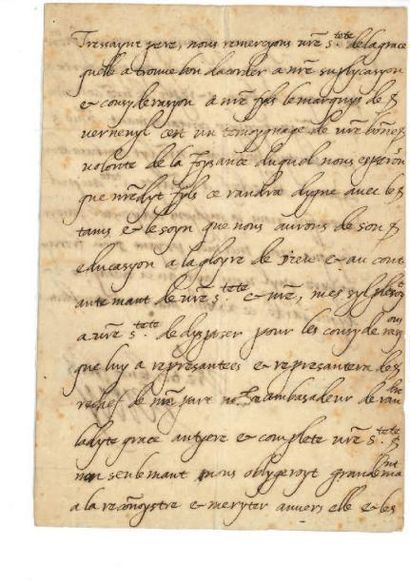 Tressaynt pere, nous remercyons vre s.tete de la grace
quelle a trouve bon dacorder a nre suplycasyon
& consyderasyon a nre fyls le marquys de
vernenyl cest un temoygnage de vre bonne
volonte de la joysance duquel nous esperons
que nredyt fyls ce randra dygne avec le
tams & le soyn que nous aurons de son
educasyon a la gloyre de dieu & au cont
antemant de vre s.tete & vre, mes syl pleroyt
a vre s.tete de dysposer pour les consyderasyons
que luy a represantees & represantera de
rechef de nre part nre ambasadeur de randre
ladyte grace antyere & complete vre s.tete
non seulemant nous oblygeroyt grandemant
a la reconoystre & meryter anvers elle & les